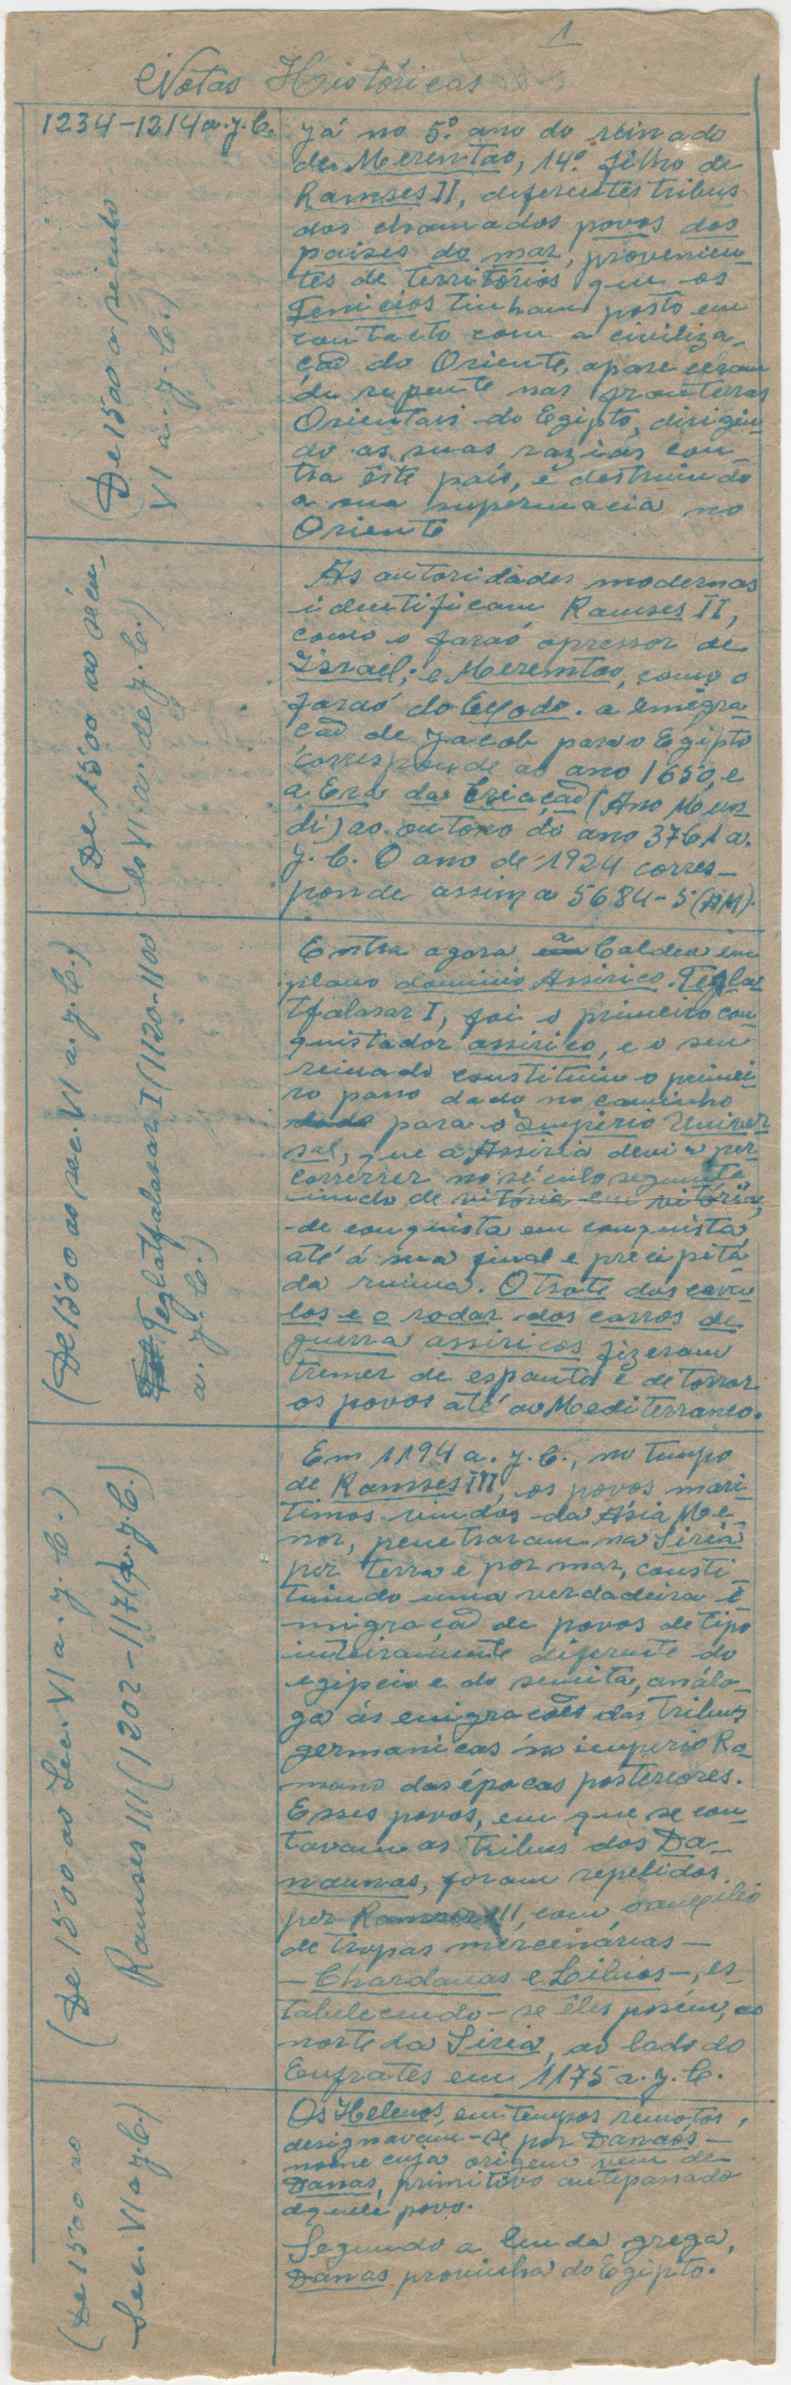 1
Notas Históricas
1234-1214 a. J. C.
(De 1500 a século
VI a. J. C.)
Já no 5º ano do reinado
de Merentao, 14º filho de
Ramses II, diferentes tribus
dos chamados povos dos
países do mar, provenien-
tes de territórios que os
Fenicios tinham posto em
contacto com a civiliza-
ção do Oriente, apareceram
de repente nas fronteiras
Orientais do Egipto, dirigin-
do as suas razias con-
tra êste país, e destruindo
a sua supremacia no
Oriente
(De 1500 ao sécu-
lo VI a. de J. C.)
As autoridades modernas
identificam Ramses II,
como o faraó opressor de
Israel; e Merentao, como o
faraó do Exodo. a emigra-
ção de Jacob para o Egipto
corresponde ao ano 1650, e
a Era da Criação (Ano Mun-
di) ao outono do ano 3761 a.
J. C. O ano de 1924 corres-
ponde assim a 5684-5 (AM).
(De 1500 ao sec. VI a. J. C.)
Teglatfalasar I (1120-1100
a. J. C.)
Entra agora a Caldea em
plano dominio Assirico. Tegla
tfalasar I, foi o primeiro con
quistador assirico, e o seu
reinado constituiu o primei
ro passo dado no caminho
para o Império Univer
sal, que a Assiria devia per
correr no século seguinte
indo de vitória em vitória,
de conquista em conquista,
até á sua final e precipita
da ruina. O trote dos cava
los e o rodar dos carros de
guerra assiricos, fizeram
tremer de espanto e de terror
os povos até ao Mediterraneo.
(De 1500 ao Sec. VI a. J. C.)
Ramses III (1202-1171 a. J. C.)
Em 1194 a. J. C., no tempo
de Ramses III, os povos mari
timos vindos da Ásia Me-
nor, penetraram na Siria
por terra e por mar, consti-
tuindo uma verdadeira e-
migração de povos de tipo
inteiramente diferente do
egipcio e do semita, análo-
ga ás emigrações das tribus
germanicas no imperio Ro-
mano das épocas posteriores.
Esses povos, em que se con-
tavam as tribus dos Da-
naunas, foram repelidos
por Ramses III, com o auxilio
de tropas mercenárias —
— Chardanas e Libios —, es-
tabelecendo-se êles porém, ao
norte da Siria, ao lado do
Eufrates em 1175 a. J. C.
(De 1500 ao
Sec. VI a J. C.)
Os Helenos, em tempos remotos,
designavam-se por Danaos —
nome cuja origem vem de
Danas, primitivo antepassado
dquele povo.
Segundo a lenda grega,
Danas provinha do Egipto.